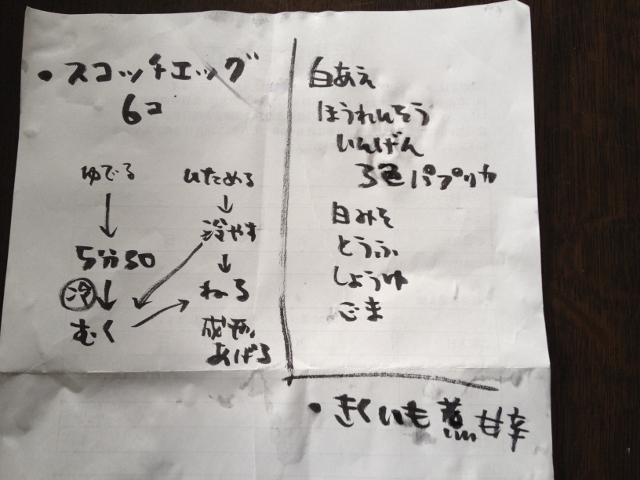 ・スコッチエッグ
6コ
ゆでる
↓
5分30
冷↓
むく
↓
冷やす
↓
ねる
あげる
白あえ
ほうれんそう
いんげん
3色パプリカ
白みそ
とうふ
しょうゆ
ごま
・きくいも煮 甘辛